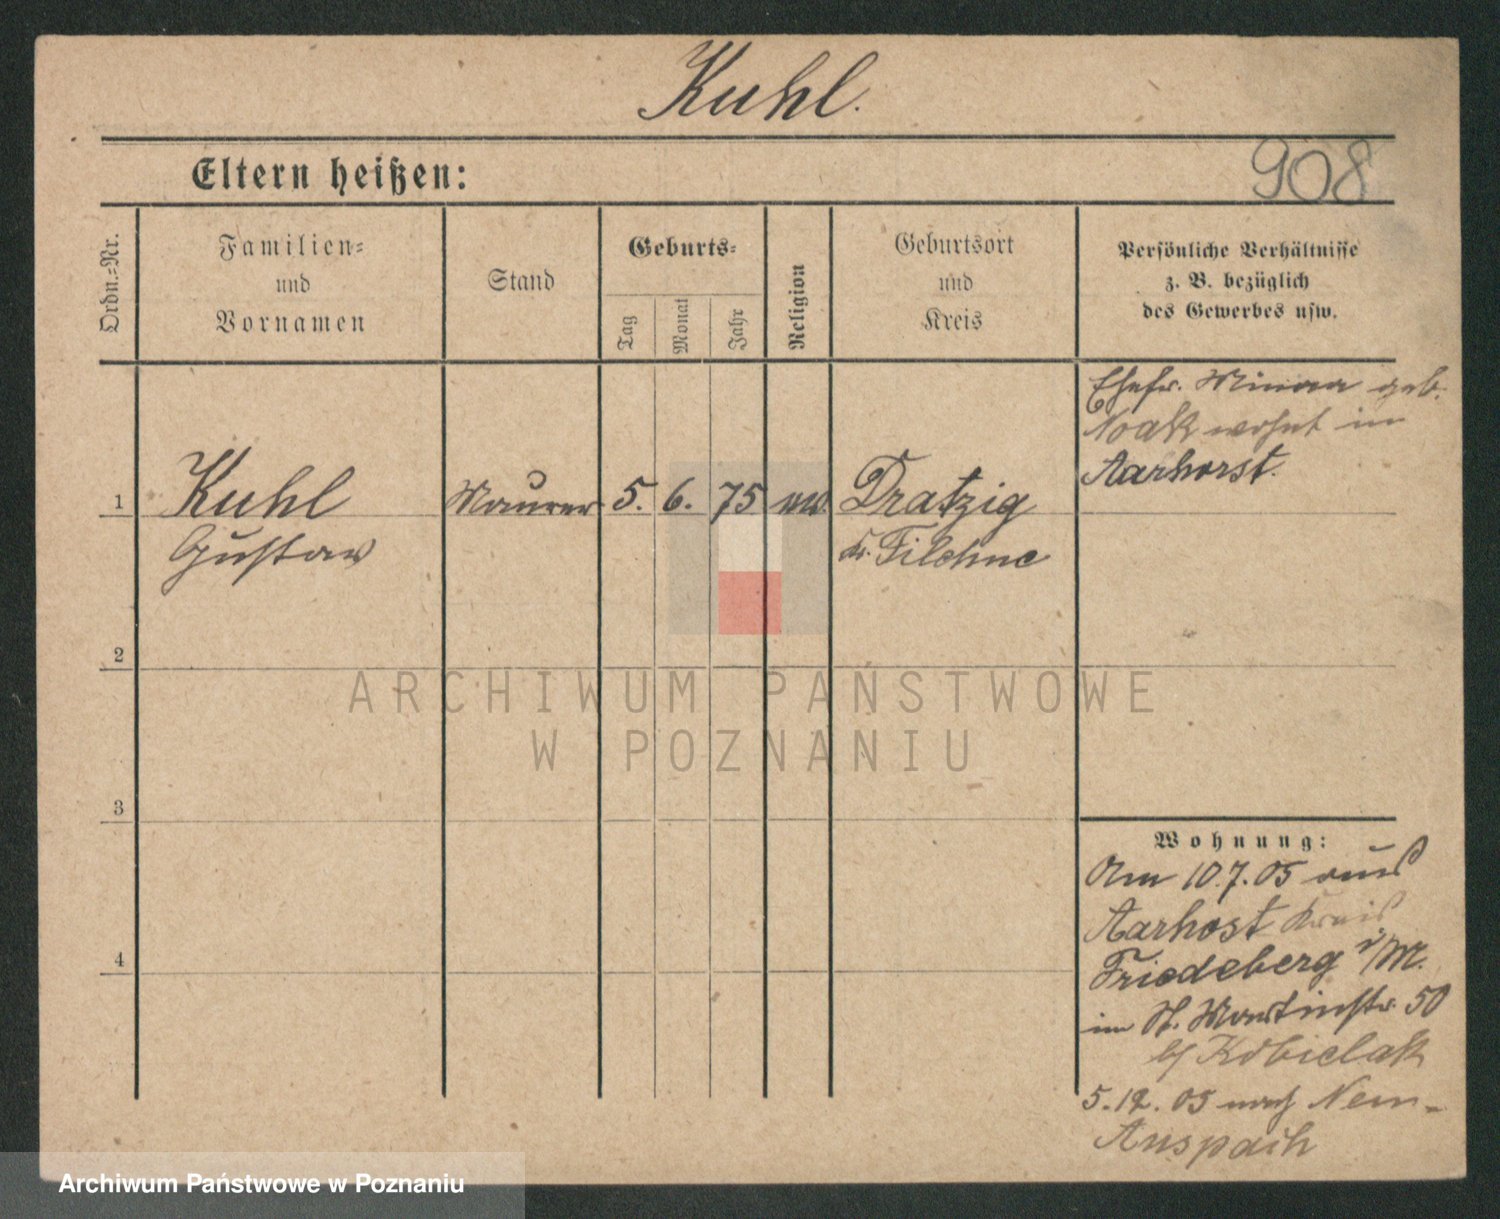 Kuhl.
Eltern heißen:
908
Ordn.-Nr.
Familien-
und
Vornamen
Stand
Geburts-
Tag
Monat
Jahr
Religion
Geburtsort
und
Kreis
Persönliche Verhältnisse
z. B. bezüglich
des Gewerbes usw.
Ehefr. Minna geb.
Noak wohnt in
Aarhorst.
1
Kuhl
Gustav
Maurer
5.
6.
75
Dratzig
Kr. Filehne
2
ARCHIWUM PAŃSTWOWE
W POZNANIU
3
4
Wohnung:
Am 10.7.05 aus
Aarhost Kreis
Friedeberg i/M.
in St. Martinstr. 50
b/ Kobielak
5.12.05 nach Neu-
Anspach
Archiwum Państwowe w Poznaniu